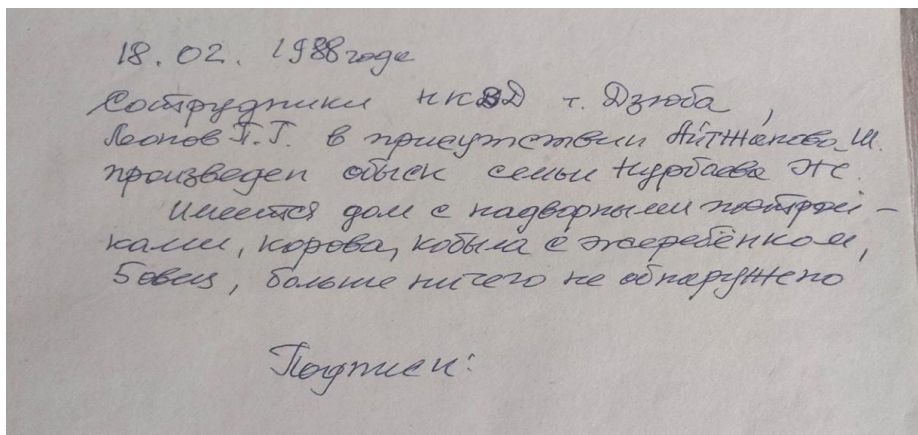 18.02. 1988 годе
Сотрудники НКВД т. Дзюба,
Леонов Г.Г. в присутствии Айтжанова Ш.
произведен обыск семьи Нурбаева Ж.
Имеется дом с надворными построй-
ками, корова, кобыла с жеребёнком,
5 овец, больше ничего не обнаружено
Подписи: